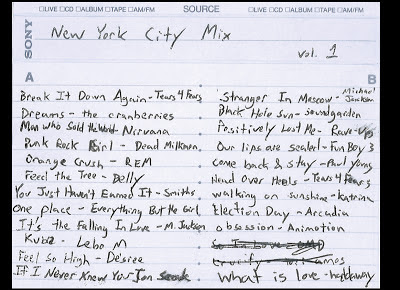 □LIVE □CD □ALBUM □TAPE □AM/FM SOURCE □LIVE □CD □ALBUM □TAPE □AM/FM
SONY
New York City Mix
vol. 1
A
Break It Down Again - Tears 4 Fears
Dreams - the cranberries
Man who Sold the World - Nirvana
Punk Rock Girl - Dead Milkmen
Orange Crush - REM
Feel the Tree - Belly
You Just Haven't Earned It - Smiths
one place - Everything But the Girl
It's the Falling In Love - M. Jackson
Kuba - Lebo M
Feel So High - Desiree
If I Never Knew You Jon
B
Stranger In Moscow - Michael Jackson
Black Hole Sun - soundgarden
Positively Lost Me - Rave-up
Our lips are sealed - Fun Boy 3
come back & stay - Paul Young
Head Over Heels - Tears 4 Fears
walking on sunshine - Katrina
Election Day - Arcadia
obsession - Animotion
So In Love - OMD
crucify - tori amos
What is love - haddaway